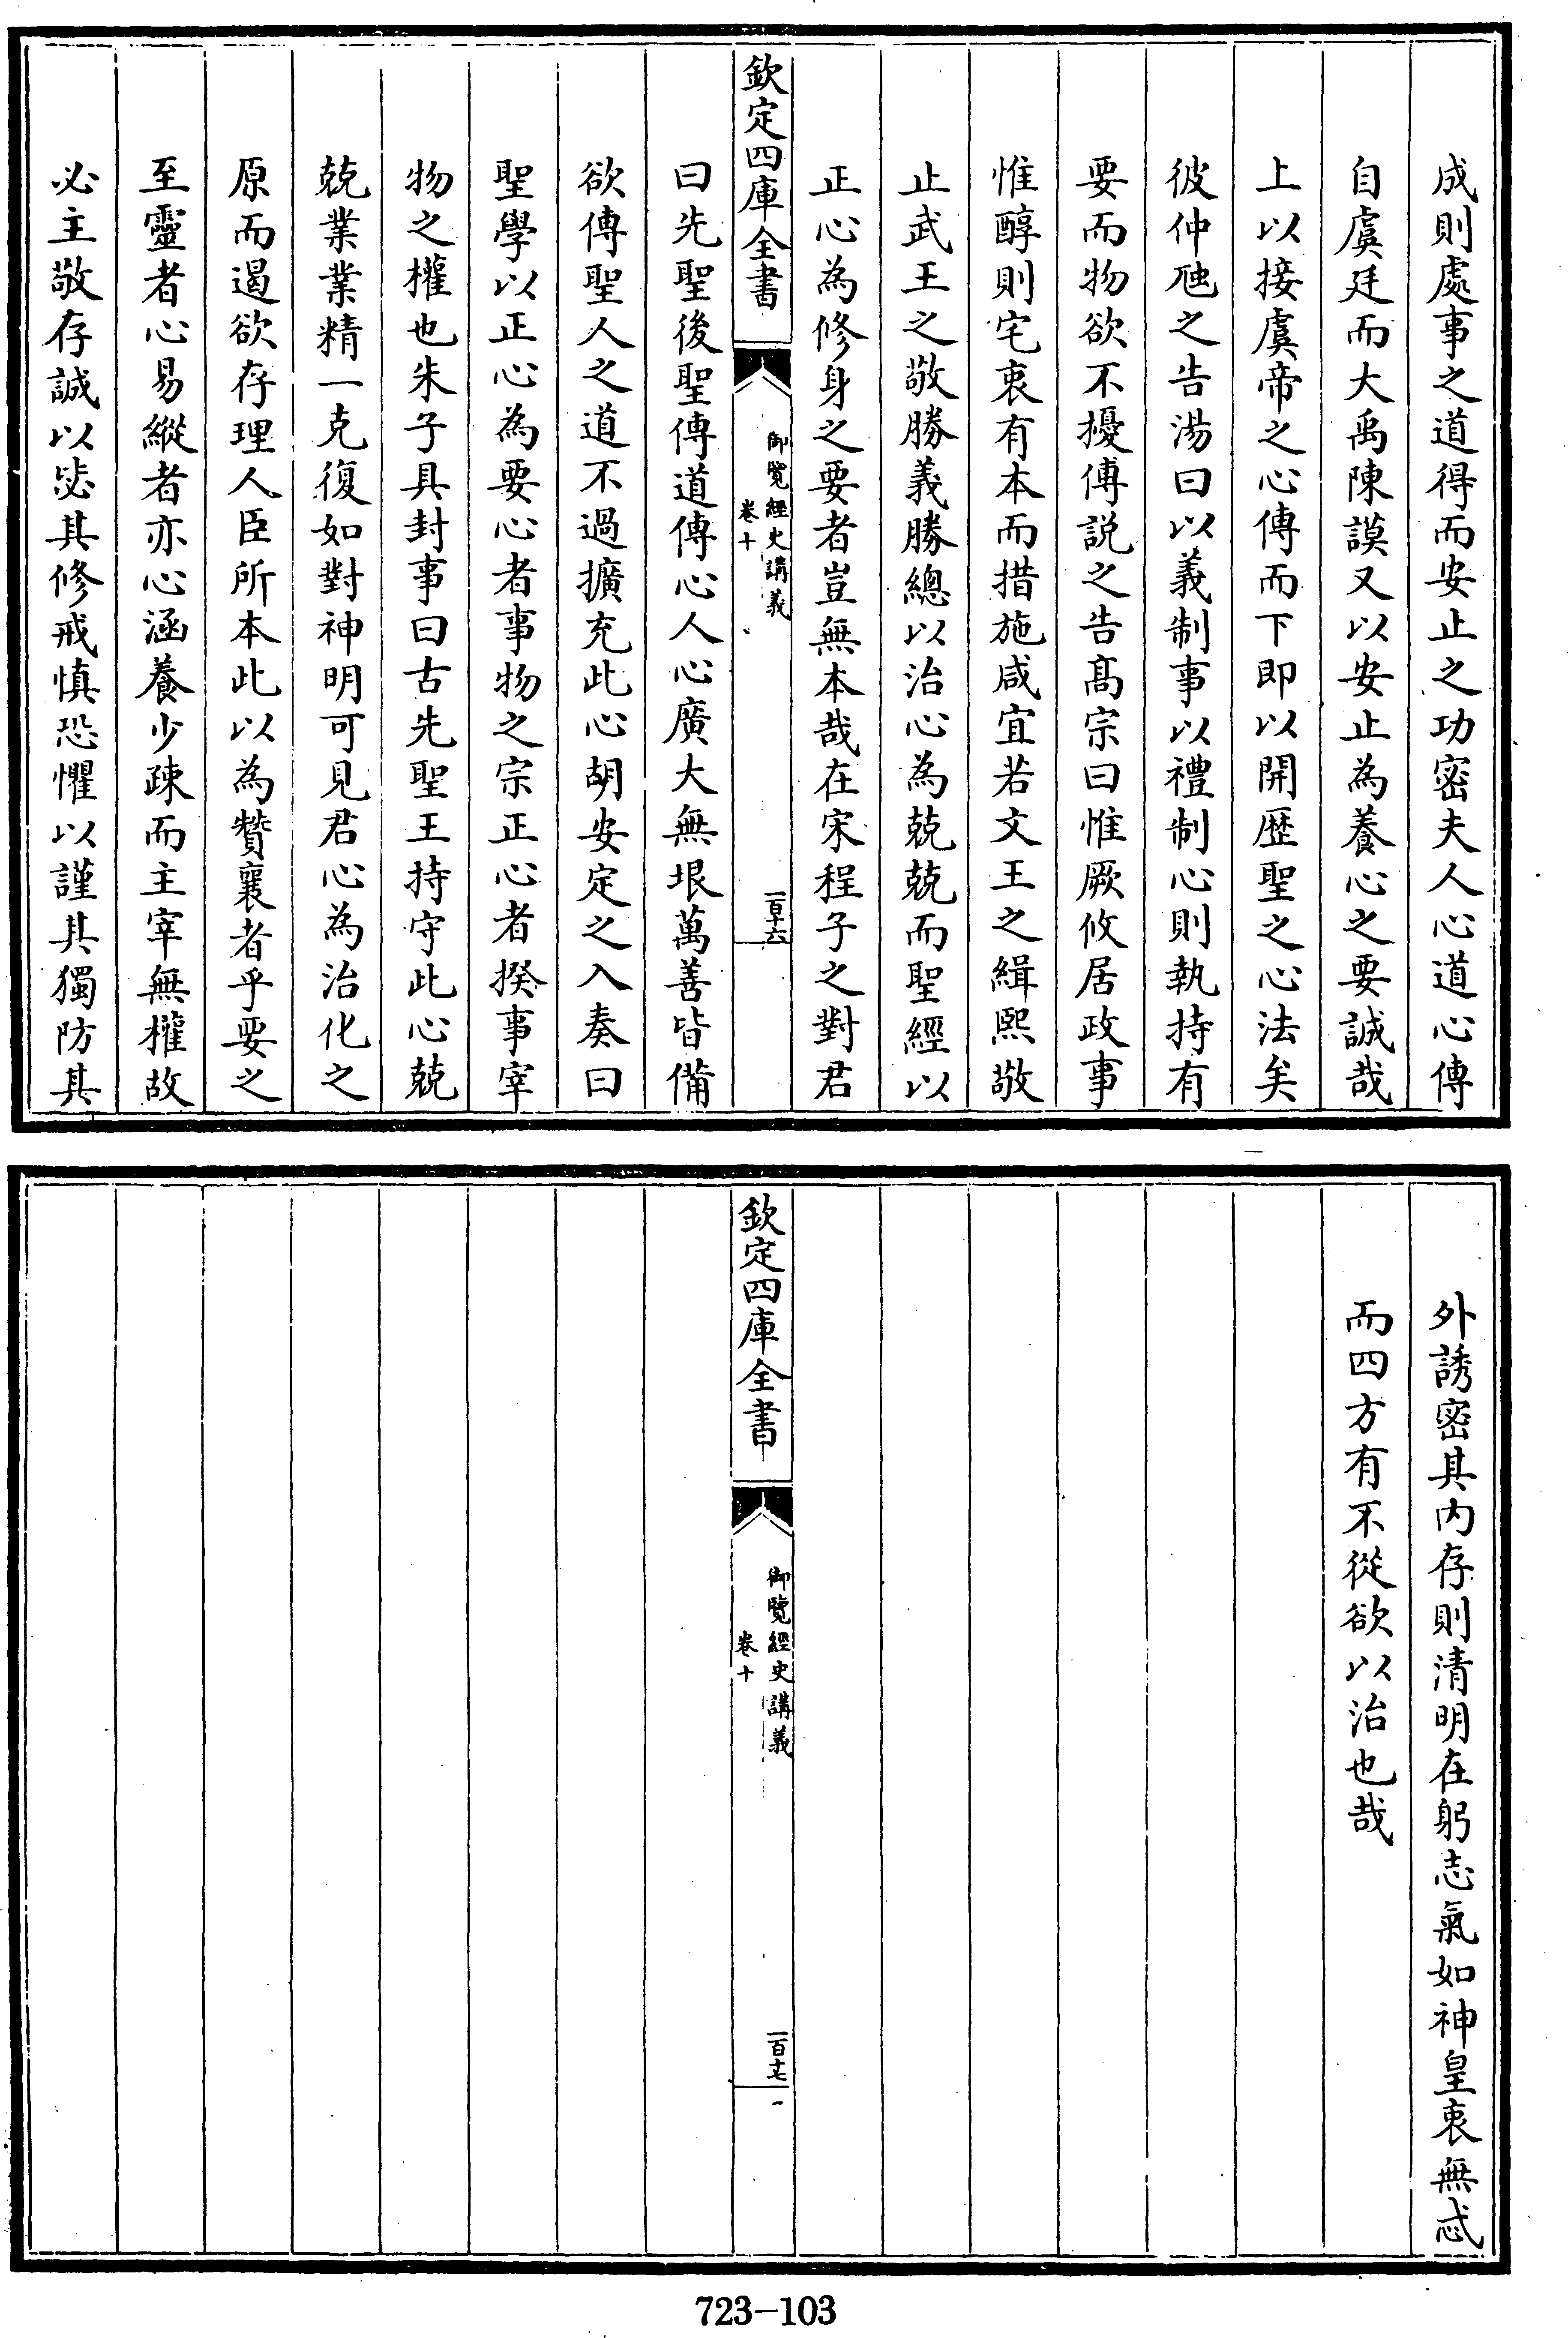 成則處事之道得而安止之功密夫人心道心傳
自虞廷而大禹陳謨又以安止為養心之要誠哉
上以接虞帝之心傳而下即以開歷聖之心法矣
彼仲虺之告湯曰以義制事以禮制心則執持有
要而物欲不擾傅説之告髙宗曰惟厥攸居政事
惟醇則宅衷有本而措施咸宜若文王之緝熙敬
止武王之敬勝義勝總以治心為兢兢而聖經以
正心為修身之要者豈無本哉在宋程子之對君
欽定四庫全書
御覽經史講義
卷十
一百十六
曰先聖後聖傳道傳心人心廣大無垠萬善皆備
欲傳聖人之道不過擴充此心胡安定之入奏曰
聖學以正心為要心者事物之宗正心者揆事宰
物之權也朱子具封事曰古先聖王持守此心兢
兢業業精一克復如對神明可見君心為治化之
原而遏欲存理人臣所本此以為贊襄者乎要之
至靈者心易縱者亦心涵養少疎而主宰無權故
必主敬存誠以毖其修戒慎恐懼以謹其獨防其
外誘密其内存則清明在躬志氣如神皇衷無忒
而四方有不從欲以治也哉
欽定四庫全書
御覽經史講義
卷十
一百十七
723-103